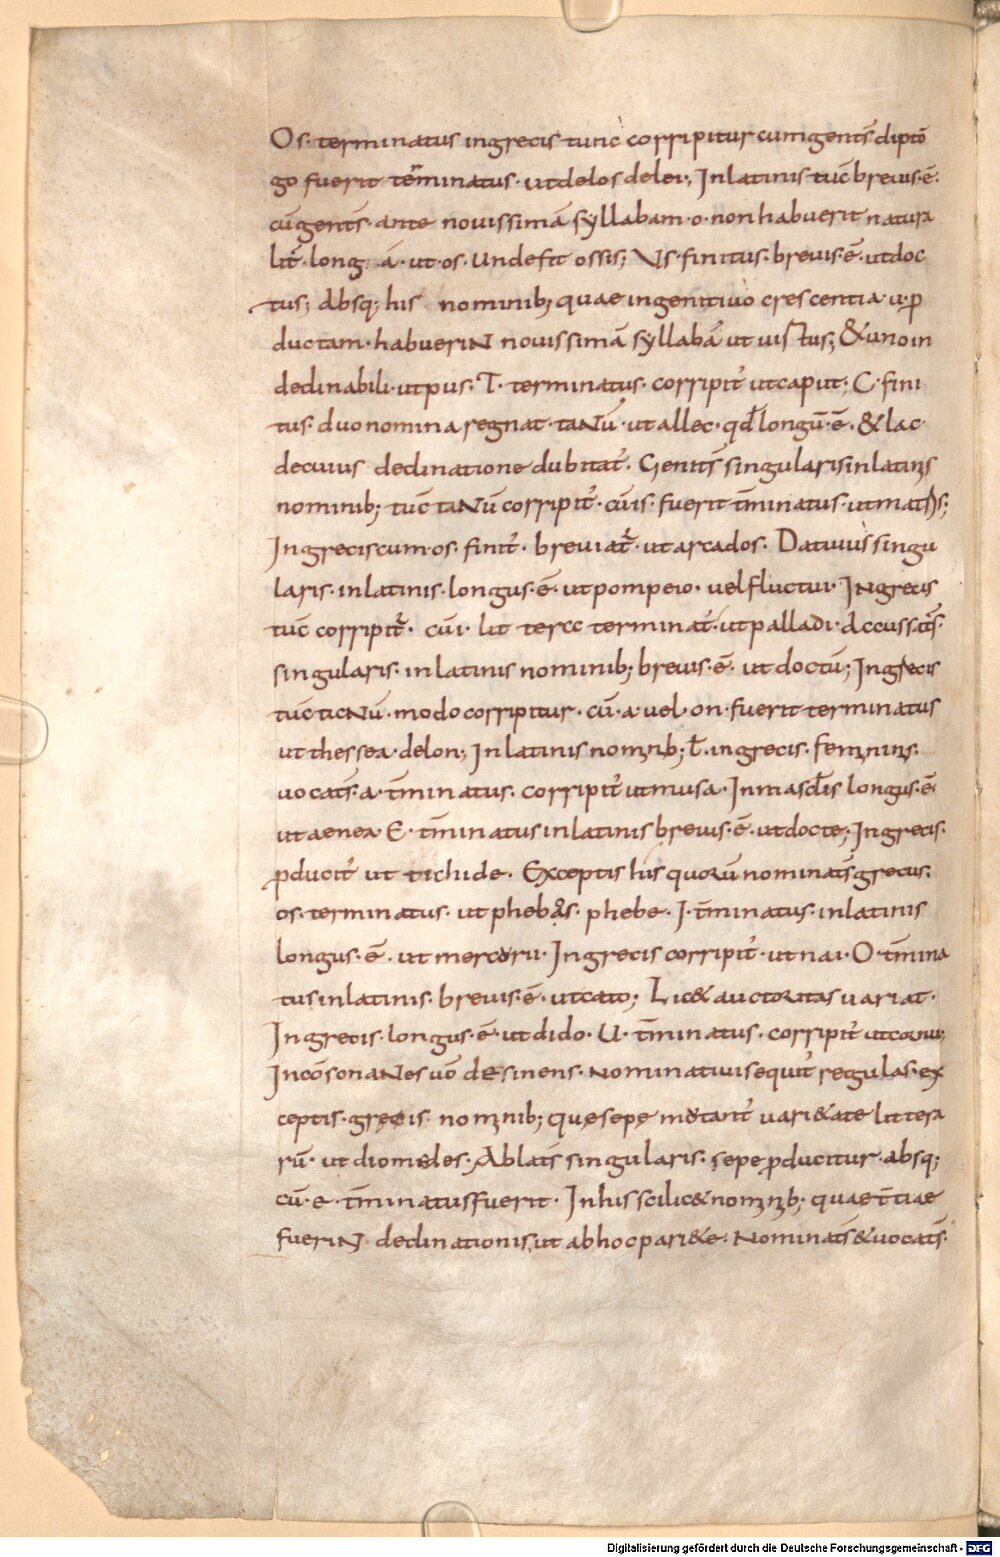 Os· terminatus ingrecis tunc corripitur cumgentꝭ diptō
go fuerit tēminatus· utdelos delei; Inlatinis tuc̄ breuis·ē·
cū gentꝭ· ante nouissimā syllabam·o·non habuerit natura
lit̄· long ā·ut·os· undefit ossis; Vs·finitus·breuis·ē·utdoc
tus; Absq; his nominib; quae ingenitiuo crescentia·u·ꝑ
ductam·habueriN nouissimā syllabā ut uirtus; &uno in
declinabili·utpus· T· terminatus· corripit̄ utcaput; C·fini
tus· duo nomina regnat·taNū·ut allec· qd̄ longū·ē· & lac·
de cuius declinatione dubitat̄· Genitꝭ singularis inlatinis
nominib; tuc̄ taNū corripit̄· cū is· fuerit t̄minatus· utmatris;
Ingrecis cum·os· finit̄· breuiat̄· utarcados· Datiuus singu
laris· inlatinis·longus·ē· utpompeio· uelfluctui· INgrecis
tuc̄ corripit̄· cū i· lit terа terminat̄· utpalladi· Accussatꝭ
singularis· in latinis nominib; breuis·ē· ut doctū; Ingrecis
tuc̄ taNū· modo corripitur· cū·a·uel·on·fuerit terminatus
ut thessea·delon; Inlatinis nominib; ł·ingrecis· femininis·
uocatꝭ·a·t̄minatus· corripit̄ utmusa· Inmascl̄is longus·ē·
utaenea E· t̄minatus inlatinis breuis·ē·utdocte; Ingrecis·
ꝓducit̄ ut tichide· Exceptis his quorū nominatꝭ grecus·
os·terminatus· ut phebos· phebe· I· t̄minatus· inlatinis
longus·ē· ut mercurii· Ingrecis corripit̄·utnai· O·t̄mina
tus inlatinis· breuis·ē·utcato; Lic& auctoritas uariat·
Ingrecis·longus·ē·ut dido· U· t̄minatus· corripit̄ utcornu;
Incōsonantes uō desinens· Nominatiui sequit̄ regulas·ex
ceptis·grecis nominib; que sepe mutant̄ uari&ate littera
rū· ut diomedes· Ablatꝭ singularis· sepe ꝓducitur·absq;
cū·e· t̄minatus fuerit· Inhis scilic& nominib; quae t̄tiae
fueriN declinationis, ut ab hoc pari&e· Nominatꝭ & uocatꝭ·
Digitalisierung gefördert durch die Deutsche Forschungsgemeinschaft - DFG